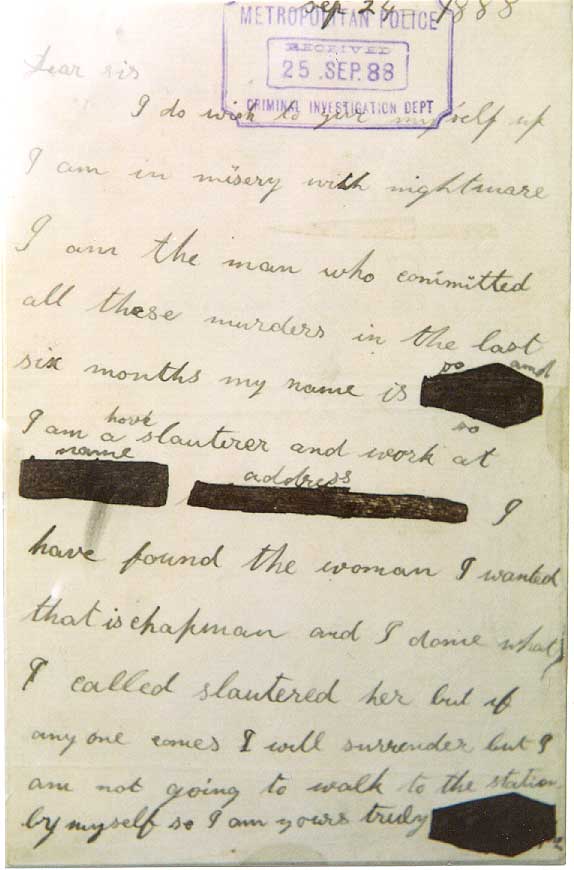 Sep 24 1888
METROPOLITAN POLICE
RECEIVED
25 .SEP.88
CRIMINAL INVESTIGATION DEPT
Dear sir
I do wish to give myself up
I am in misery with nightmare
I am the man who committed
all these murders in the last
six months my name is so and
so
I am a horse slauterer and work at
name address I
have found the woman I wanted
that is chapman and I done what
I called slautered her but if
any one comes I will surrender but I
am not going to walk to the station
by myself so I am yours truly